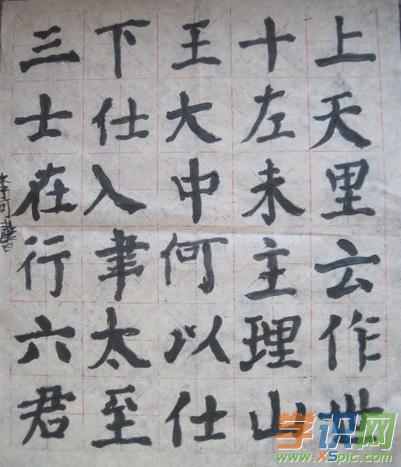 上天里云作
十左未主理山
王大中何以仕
下仕入聿太至
三士在行六君
学识网
www.XSpic.com